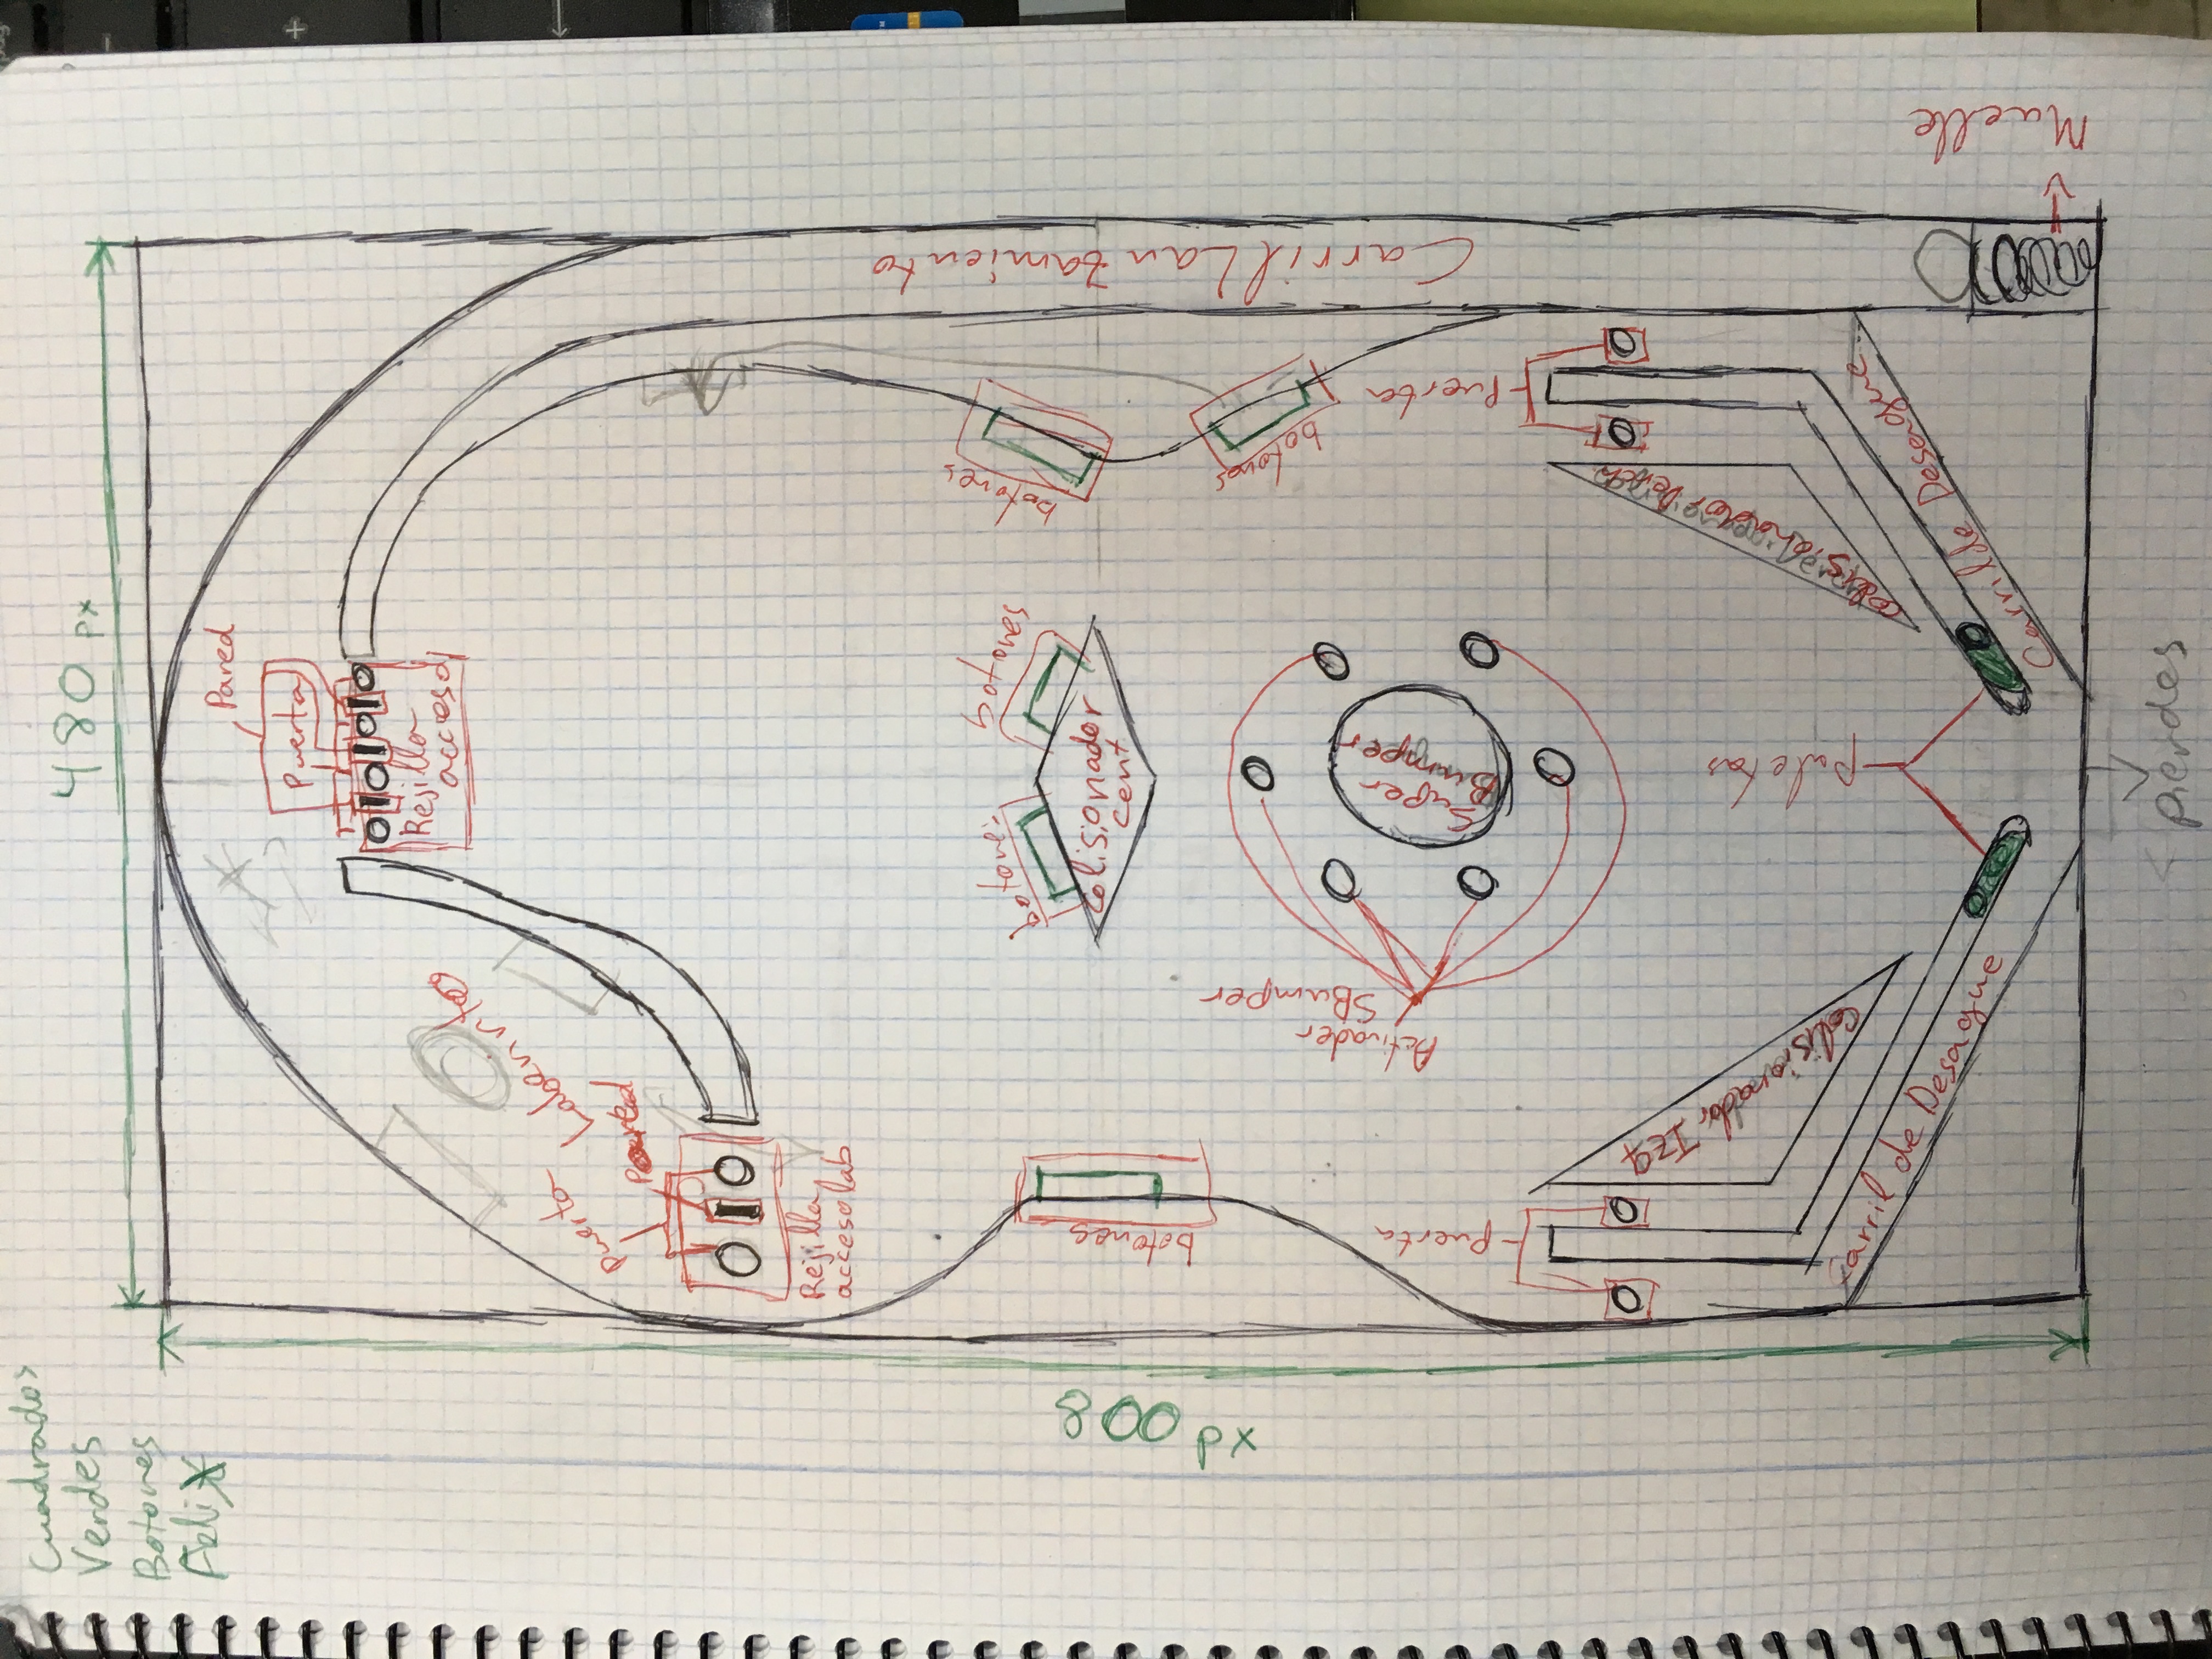 Cuadrados
Verdes
Botones
480 px
Pared
Puerta
Rejilla
acceso
Laberinto
Puerta
Pared
Rejilla
acceso lab
800 px
botones
botones
botones
botones
Colisionador
cent
botones
Carril Lanzamiento
Activador
SBumper
Super
Bumper
Puerta
Puerta
Colisionador Izq
Colisionador Derch
puletas
Carril de Desague
Carril de Desague
Muelle
pierdes